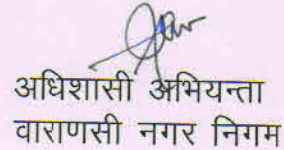 अधिशासी अभियन्ता
वाराणसी नगर निगम